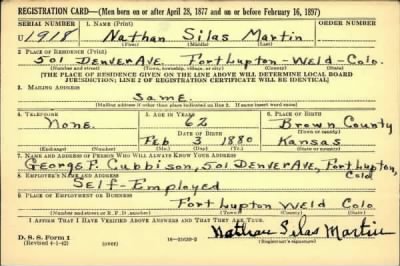 REGISTRATION CARD—(Men born on or after April 28, 1877 and on or before February 16, 1897)
SERIAL NUMBER 1. NAME (Print) ORDER NUMBER
U 1918 Nathan Silas Martin
(First) (Middle) (Last)
2. PLACE OF RESIDENCE (Print)
501 Denver Ave. Fort Lupton - Weld - Colo.
(Number and street) (Town, township, village, or city) (County) (State)
[THE PLACE OF RESIDENCE GIVEN ON THE LINE ABOVE WILL DETERMINE LOCAL BOARD
JURISDICTION; LINE 2 OF REGISTRATION CERTIFICATE WILL BE IDENTICAL]
3. MAILING ADDRESS
Same.
[Mailing address if other than place indicated on line 2. If same insert word same]
4. TELEPHONE 5. AGE IN YEARS 6. PLACE OF BIRTH
None. 62 Brown County
DATE OF BIRTH (Town or county)
Feb 3 1880 Kansas
(Mo.) (Day) (Yr.) (State or country)
7. NAME AND ADDRESS OF PERSON WHO WILL ALWAYS KNOW YOUR ADDRESS
George F. Cubbison, 501 Denver Ave, Fort Lupton, Colo
8. EMPLOYER'S NAME AND ADDRESS
Self-Employed
9. PLACE OF EMPLOYMENT OR BUSINESS
Fort Lupton Weld Colo
(Number and street or R. F. D. number) (Town) (County) (State)
I AFFIRM THAT I HAVE VERIFIED ABOVE ANSWERS AND THAT THEY ARE TRUE.
Nathan Silas Martin
D. S. S. Form 1
(Revised 4-1-42) (over) (Registrant's signature)